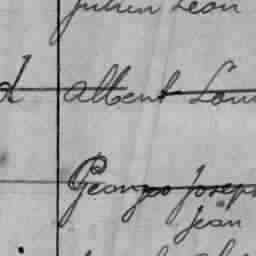 Julien Léon
d Albert Loui
Georges Joseph
Jean